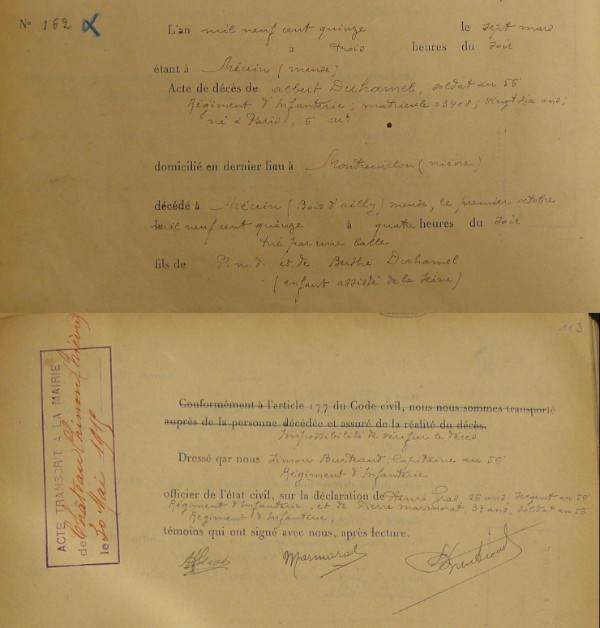 N° 162
L'an mil neuf cent quinze le sept mars
à trois heures du soir
étant à Mécrin (meuse)
Acte de décès de Albert Duhamel, soldat au 56
Régiment d'Infanterie; matricule 03908; vingt six ans;
né à Paris, 5 art
domicilié en dernier lieu à Montreuillon (nièvre)
décédé à Mécrin (Bois d'ailly) meuse, le premier octobre
mil neuf cent quinze à quatre heures du soir
tué par une balle
fils de P. n. d. et de Berthe Duhamel
(enfant assisté de la Seine)
113
ACTE TRANSCRIT A LA MAIRIE
de Château Chinon (Nièvre)
le 30 Mai 1915
Conformément à l'article 177 du Code civil, nous nous sommes transporté
auprès de la personne décédée et assuré de la réalité du décès.
Impossibilité de vérifier le décès
Dressé par nous Simon Bertrand, Capitaine au 56
Régiment d'Infanterie
officier de l'état civil, sur la déclaration de Henri Gras, 26 ans, sergent au 56
Régiment d'Infanterie, et de Pierre Marmorat, 37 ans, soldat au 56
Régiment d'Infanterie,
témoins qui ont signé avec nous, après lecture.
Marmorat